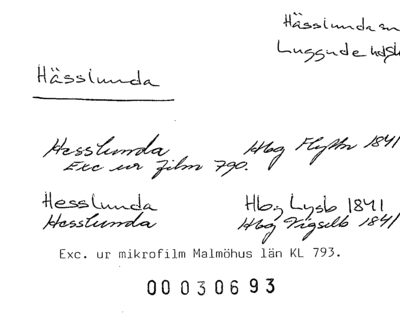 Hässlunda sn
Luggude hd
Hässlunda
Hesslunda Hbg Flyttn 1841
Exc ur film 790.
Hesslunda Hbg Lysb 1841
Hesslunda Hbg Vigselb 1841
Exc. ur mikrofilm Malmöhus län KL 793.
00030693